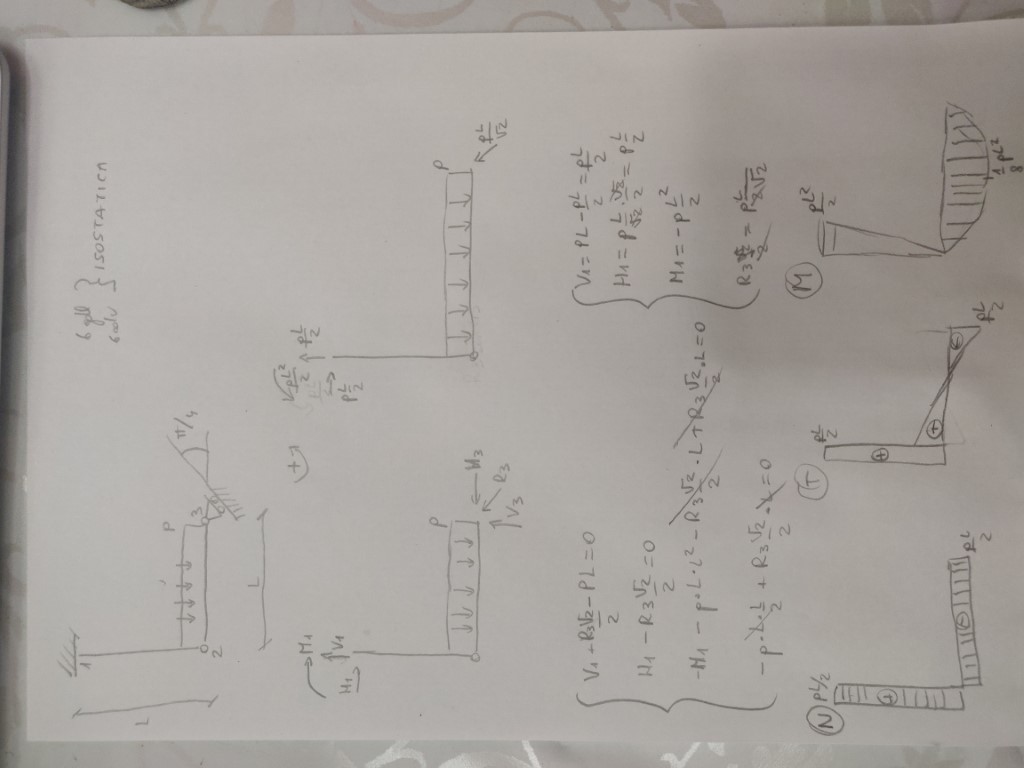 6 gdl
6 gdv } ISOSTATICA
1
L
P
3
π/4
2
L
M1
V1
H1
+
pL²/2
pL/2
pL/2
P
H3
R3
V3
P
pL/√2
V1 + R3√2/2 - PL = 0
H1 - R3 √2/2 = 0
-M1 - p·L·L² - R3 √2/2 · L + R3 √2/2 · L = 0
-p·L·L/2 + R3 √2/2 · L = 0
V1 = PL - pL/2 = pL/2
H1 = p L/√2 · √2/2 = p L/2
M1 = -p L²/2
R3 √2/2 = p L/2 √2
N
pL/2
+
-
pL/2
T
pL/2
+
+
-
pL/2
M
pL²/2
1/8 pL²